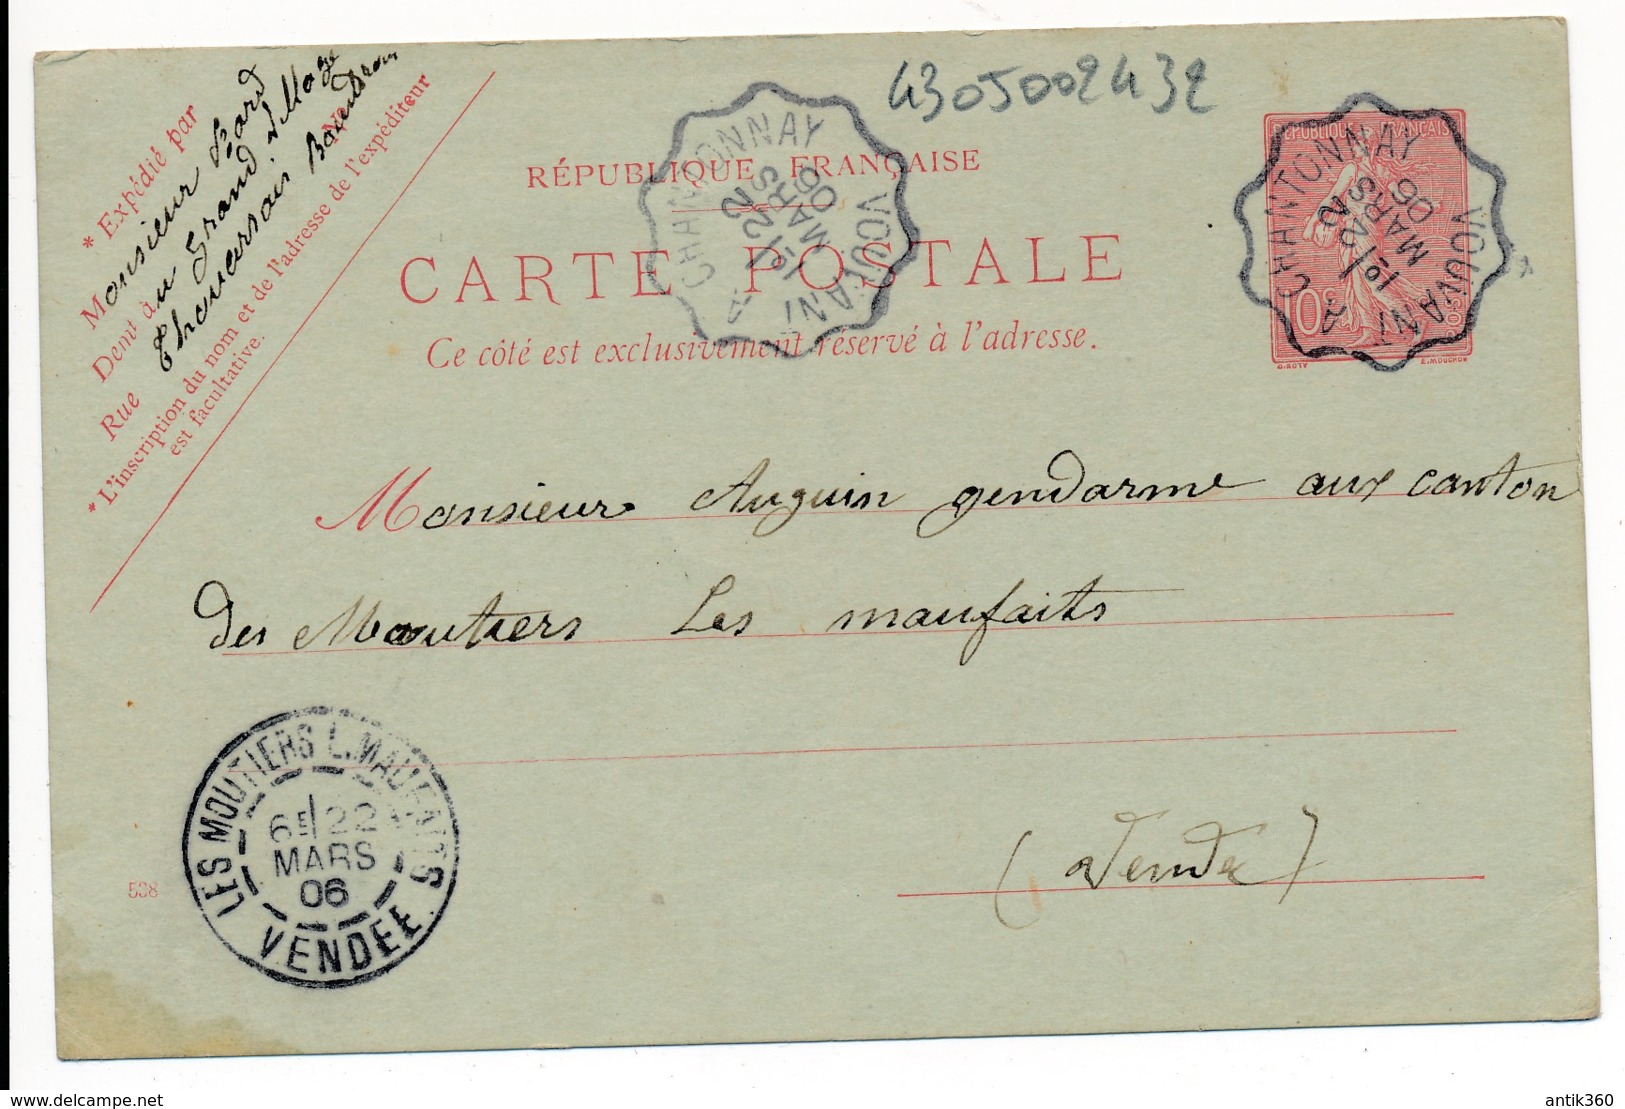 4305002432
* Expédié par
Monsieur
Demt à au Grand
Rue Thouarsais
N°
* L'inscription du nom et de l'adresse de l'expéditeur
est facultative.
RÉPUBLIQUE FRANÇAISE
CARTE POSTALE
Ce côté est exclusivement réservé à l'adresse.
CHANTONNAY
1°/22
MARS
06
VOUVANT
REPUBLIQUE FRANÇAISE
10c
O. ROTY
E. MOUCHON
CHANTONNAY
1°/22
MARS
06
VOUVANT
Monsieur Auguin gendarme aux canton
des Moutiers Les maufaits
(Vendée)
LES MOUTIERS L. MAUFAITS
6E/22
MARS
06
VENDEE
538
www.delcampe.net
antik360